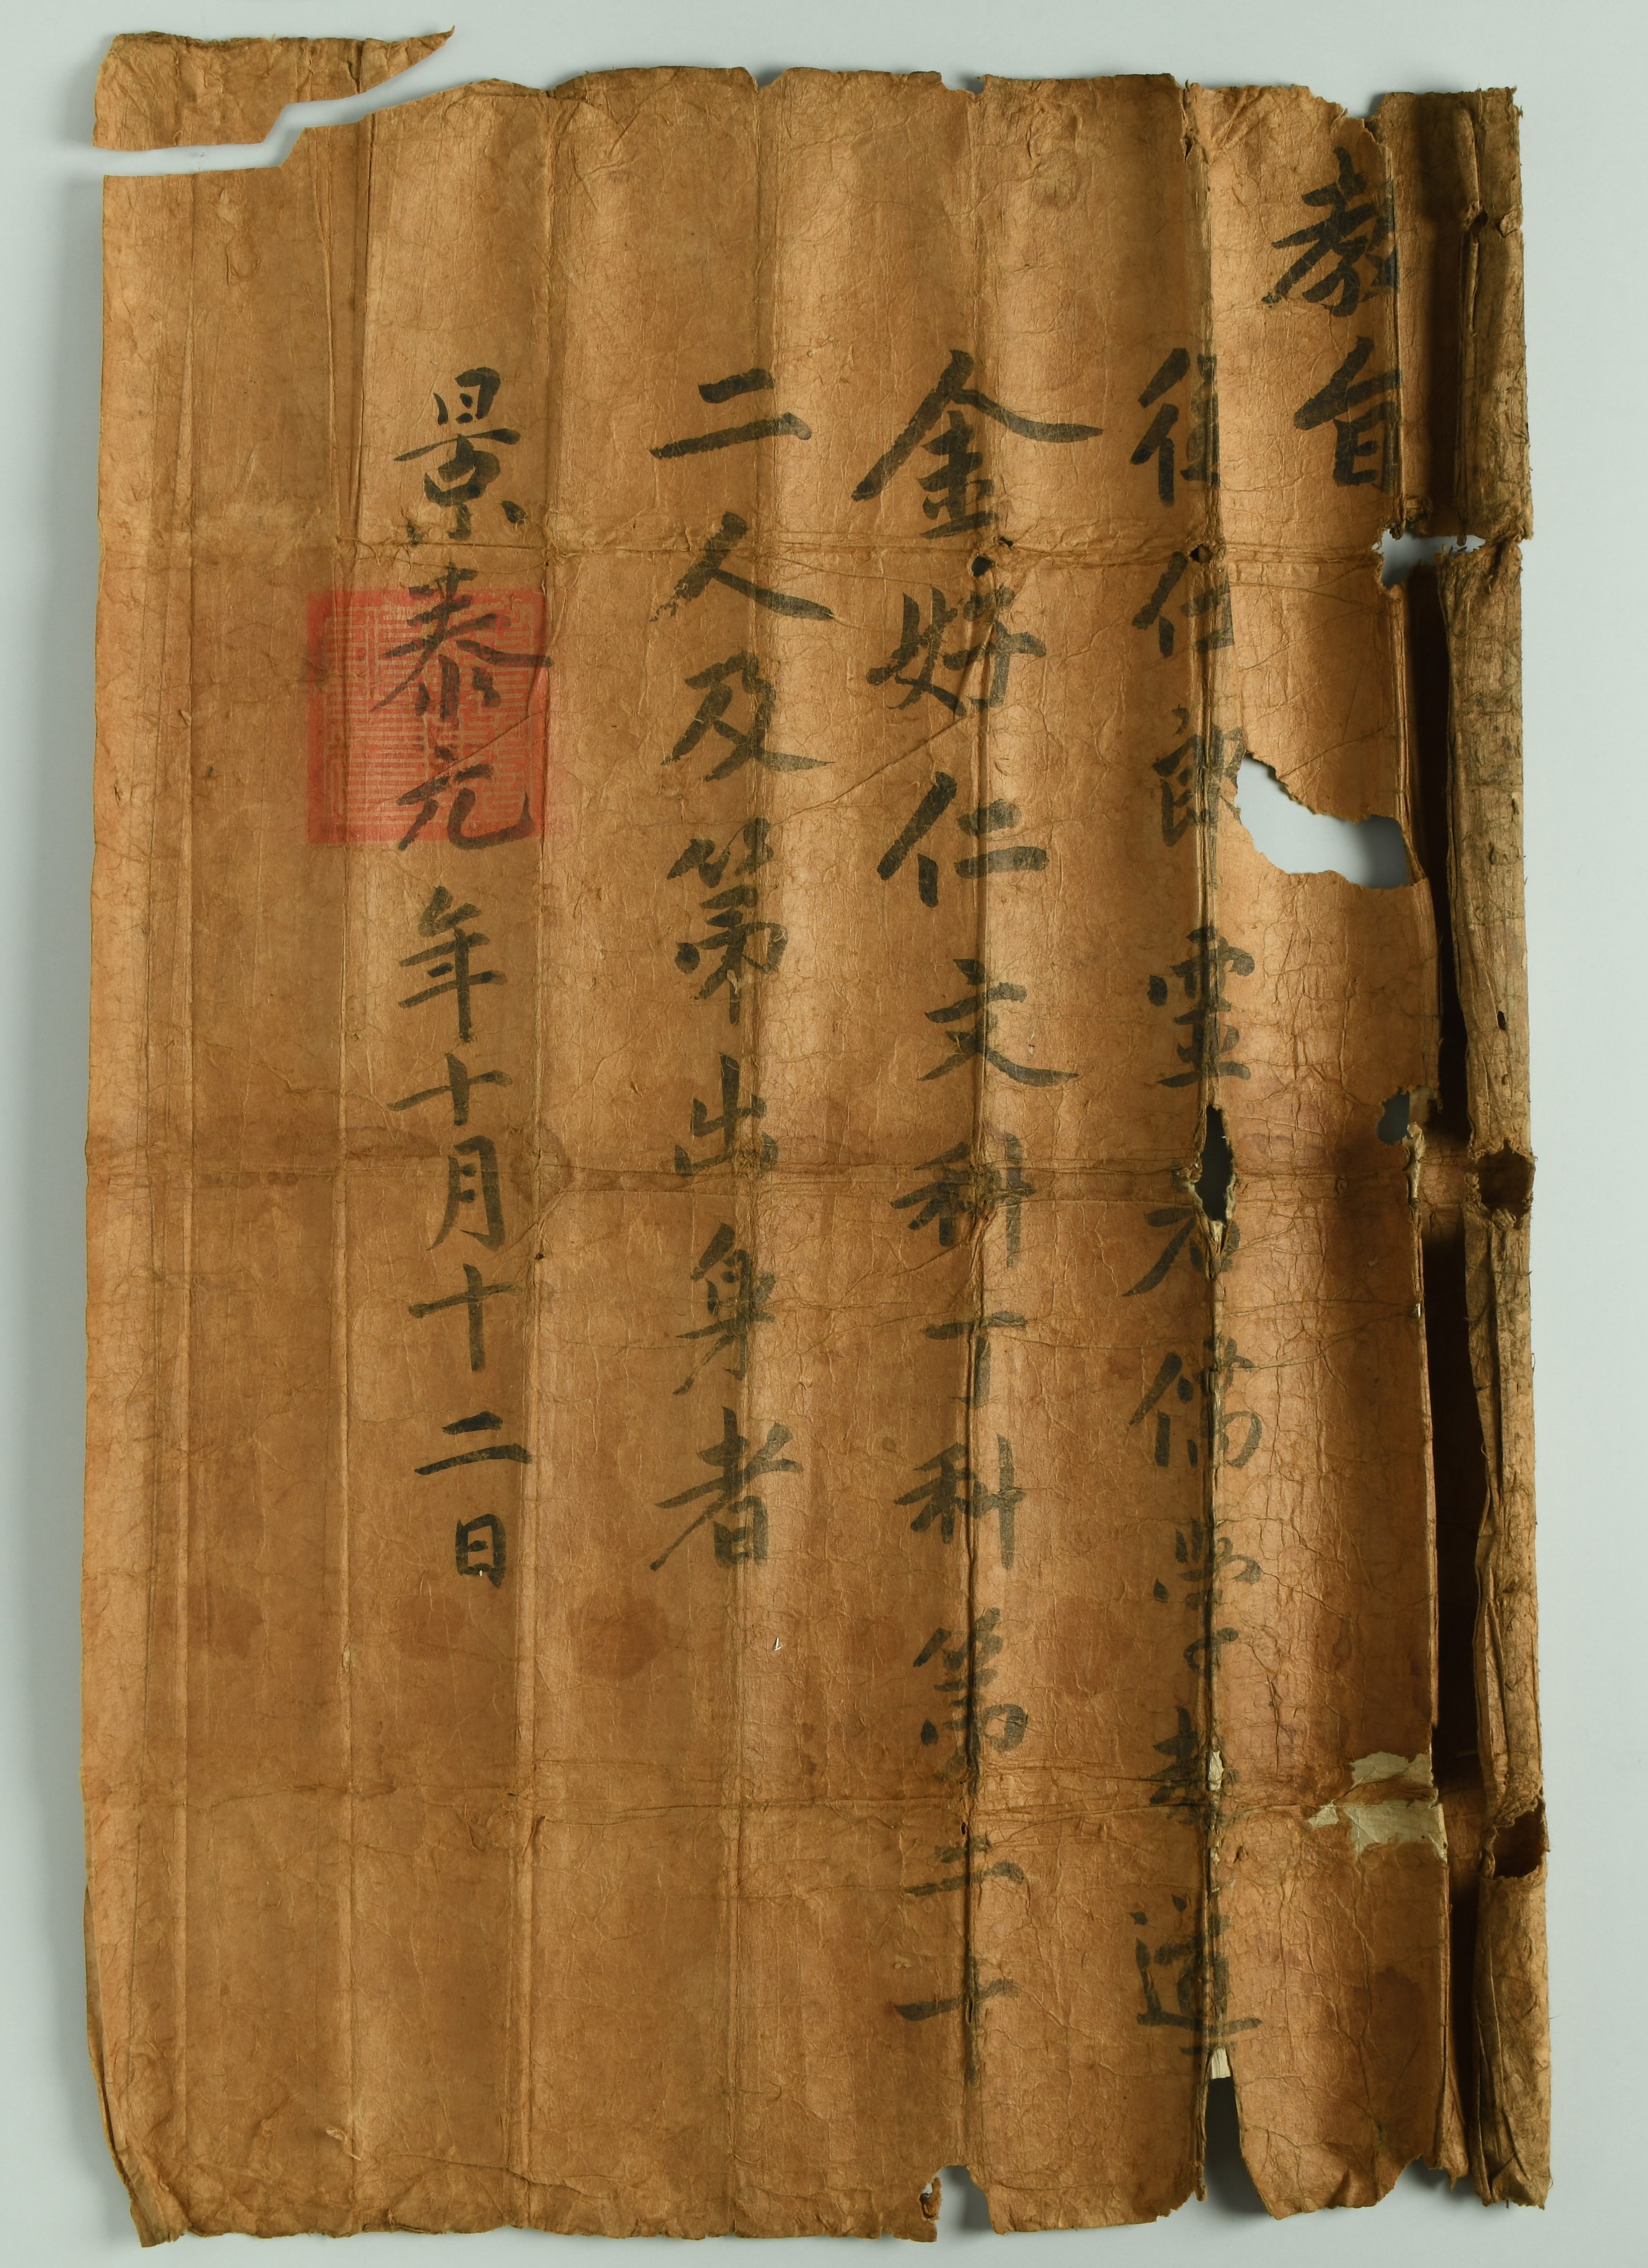 教旨
從仕郎靈儒學教導
金好仁文科丁科第二十
二人及第出身者
景泰元年十月十二日